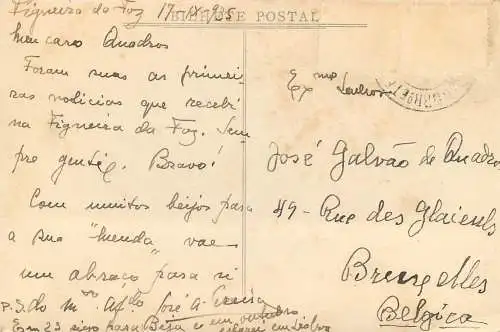 Figueira da Foz 17-IX-935
BILHETE POSTAL
Meu caro Quadros
Foram suas as primei
ras noticias que recebi
na Figueira da Foz. Sem
pre gentil. Bravo!
Com muitos beijos para
a sua "menda" vae
um abraço para si
do mto afdo José A.
P.S. Em 23 sigo para e em outubro
Exmo Senhor
José Galvão de Quadros
49 - Rue des Glaïeuls
Bruxelles
Belgica